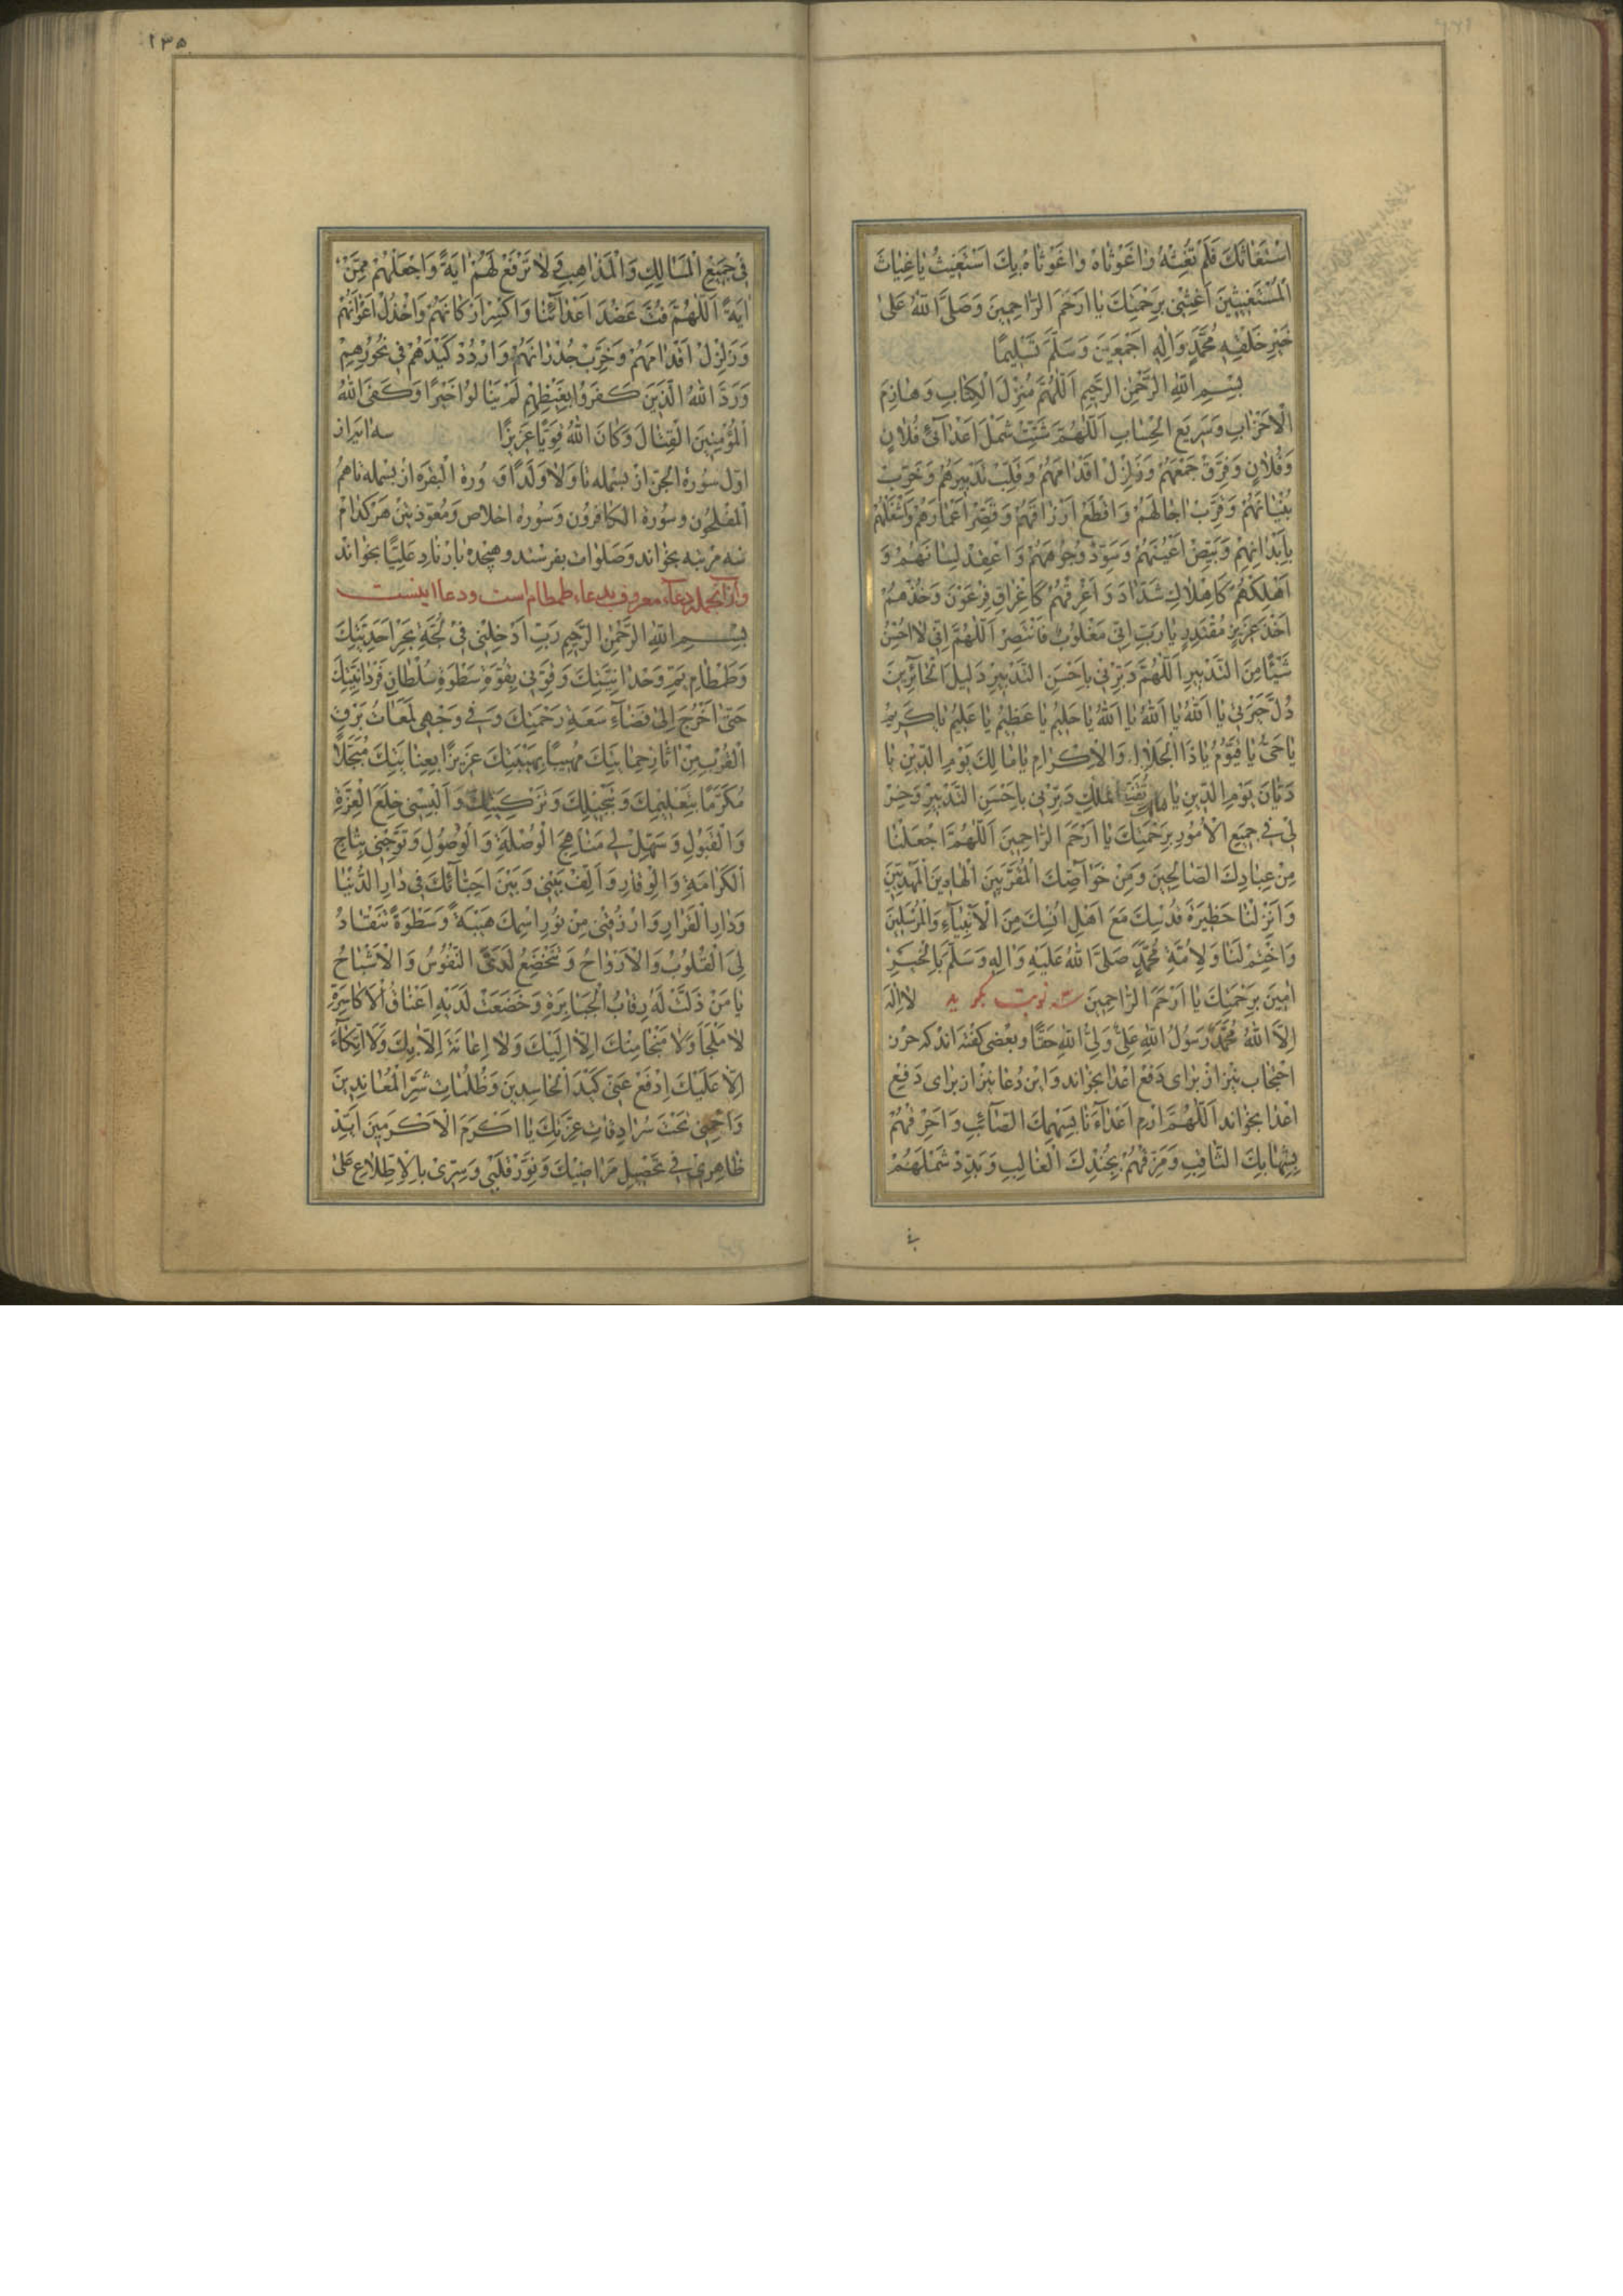 اسْتَغاثَكَ فَلَمْ تُغِثْهُ واغَوْثاهُ واغَوْثاهُ بِكَ اَسْتَغيثُ ياغِياثَ
الْمُسْتَغيثينَ اَغِثْنى بِرَحْمَتِكَ يا اَرْحَمَ الرّاحِمينَ وَصَلَّى اللّهُ عَلى
خَيْرِ خَلْقِه مُحَمَّدٍ وَالِه اَجْمَعينَ وَسَلَّمَ تَسْليمًا
بِسْمِ اللّهِ الرَّحْمنِ الرَّحيمِ اَللّهُمَّ مُنْزِلَ الْكِتابِ وَهازِمَ
الْاَحْزابِ وَسَريعَ الْحِسابِ اَللّهُمَّ شَتِّتْ شَمْلَ اَعْدآئى فُلانٍ
وَفُلانٍ وَفَرِّقْ جَمْعَهُمْ وَزَلْزِلْ اَقْدامَهُمْ وَقَلِّبْ تَدْبيرَهُمْ وَخَرِّبْ
بُنْيانَهُمْ وَقَرِّبْ اجالَهُمْ وَاقْطَعْ اَرْزاقَهُمْ وَقَصِّرْ اَعْمارَهُمْ وَاشْغَلْهُمْ
بِاَبْدانِهِمْ وَبَيِّضْ اَعْيُنَهُمْ وَسَوِّدْ وُجُوهَهُمْ وَاعْقِدْ لِسانَهُمْ وَ
اَهْلِكْهُمْ كَاِهْلاكِ شَدّادَ وَاَغْرِقْهُمْ كَاِغْراقِ فِرْعَوْنَ وَخُذْهُمْ
اَخْذَ عَزيزٍ مُقْتَدِرٍ يارَبِّ اِنّى مَغْلُوبٌ فَانْتَصِرْ اَللّهُمَّ اِنّى لااُحْسِنُ
شَيْئًا مِنَ التَّدْبيرِ اَللّهُمَّ دَبِّرْنى بِاَحْسَنِ التَّدْبيرِ دَليلَ الْحآئِرينَ
يا اَللّهُ يا اَللّهُ يا اَللّهُ ياحَليمُ ياعَظيمُ ياعَليمُ ياكَريمُ
ياحَىُّ ياقَيُّومُ ياذَا الْجَلالِ وَالْاِكْرامِ يامالِكَ يَوْمِ الدّينِ يا
دَيّانَ يَوْمِ الدّينِ يا الْمُلْكِ دَبِّرْنى بِاَحْسَنِ التَّدْبيرِ وَخِرْ
لى فى جَميعِ الْاُمُورِ بِرَحْمَتِكَ يا اَرْحَمَ الرّاحِمينَ اَللّهُمَّ اجْعَلْنا
مِنْ عِبادِكَ الصّالِحينَ وَمِنْ خَوآصِّكَ الْمُقَرَّبينَ الْهادينَ الْمَهْدِيّينَ
وَاَنْزِلْنا حَظيرَةَ قُدْسِكَ مَعَ اَهْلِ اُنْسِكَ مِنَ الْاَنْبِيآءِ وَالْمُرْسَلينَ
وَاخْتِمْ لَنا وَلِاُمَّةِ مُحَمَّدٍ صَلَّى اللّهُ عَلَيْهِ وَالِه وَسَلَّمَ بِالْخَيْرِ
امينَ بِرَحْمَتِكَ يا اَرْحَمَ الرّاحِمينَ سه نوبت بگويد لااِلهَ
اِلَّا اللّهُ مُحَمَّدٌ رَسُولُ اللّهِ عَلِىٌّ وَلِىُّ اللّهِ حَقًّا وبعضى گفته اند كه حرز
احتجاب نيز از براى دفع اعدا بخواند واين دعا نيز از براى دفع
اعدا بخواند اَللّهُمَّ ارْمِ اَعْدآءَنا بِسَهْمِكَ الصّآئِبِ وَاَحْرِقْهُمْ
بِشِهابِكَ الثّاقِبِ وَمَزِّقْهُمْ بِجُنْدِكَ الْغالِبِ وَبَدِّدْ شَمْلَهُمْ
فى
١٣٥
فى جَميعِ الْمَسالِكِ وَالْمَذاهِبِ لاتَرْفَعْ لَهُمْ ايَةً وَاجْعَلْهُمْ مِمَّنْ
ايَةً اَللّهُمَّ فُتَّ عَضُدَ اَعْدآئِنا وَاكْسِرْ اَرْكانَهُمْ وَاخْذُلْ اَعْوانَهُمْ
وَزَلْزِلْ اَقْدامَهُمْ وَخَرِّبْ جُدْرانَهُمْ وَارْدُدْ كَيْدَهُمْ فى نُحُورِهِمْ
وَرَدَّ اللّهُ الَّذينَ كَفَرُوا بِغَيْظِهِمْ لَمْ يَنالُوا خَيْرًا وَكَفَى اللّهُ
الْمُؤْمِنينَ الْقِتالَ وَكانَ اللّهُ قَوِيًّا عَزيزًا
اول سورة الجن از بسمله تا ولاولدًا و سورة البقره از بسمله تا هم
المفلحون وسورة الكافرون وسوره اخلاص ومعوذتين هركدام
سه مرتبه بخواند وصلوات بفرستد وهيجده بار ناد عليًا بخواند
وازآنجمله دعاء معروف بدعاء طمطام است ودعا اينست
بِسْمِ اللّهِ الرَّحْمنِ الرَّحيمِ رَبِّ اَدْخِلْنى فى لُجَّةِ بَحْرِ اَحَدِيَّتِكَ
وَطَمْطامِ يَمِّ وَحْدانِيَّتِكَ وَقَوِّنى بِقُوَّةِ سَطْوَةِ سُلْطانِ فَرْدانِيَّتِكَ
حَتّى اَخْرُجَ اِلى فَضآءِ سَعَةِ رَحْمَتِكَ وَفى وَجْهى لَمَعاتُ بَرْقِ
الْقُرْبِ مِنْ اثارِ حِمايَتِكَ مَهيبًا بِهَيْبَتِكَ عَزيزًا بِعِنايَتِكَ مُبَجَّلًا
مُكَرَّمًا بِتَعْليمِكَ وَتَبْجيلِكَ وَتَزْكِيَتِكَ وَاَلْبِسْنى خِلَعَ الْعِزَّةِ
وَالْقَبُولِ وَسَهِّلْ لى مَناهِجَ الْوُصْلَةِ وَالْوُصُولِ وَتَوِّجْنى بِتاجِ
الْكَرامَةِ وَالْوِقارِ وَاَلِّفْ بَيْنى وَبَيْنَ اَحِبّآئِكَ فى دارِ الدُّنْيا
وَدارِ الْقَرارِ وَارْزُقْنى مِنْ نُورِ اسْمِكَ هَيْبَةً وَسَطْوَةً تَنْقادُ
لِىَ الْقُلُوبُ وَالْاَرْواحُ وَتَخْضَعُ لَدَىَّ النُّفُوسُ وَالْاَشْباحُ
يا مَنْ ذَلَّتْ لَهُ رِقابُ الْجَبابِرَةِ وَخَضَعَتْ لَدَيْهِ اَعْناقُ الْاَكاسِرَةِ
لامَلْجَأَ وَلامَنْجا مِنْكَ اِلّا اِلَيْكَ وَلااِعانَةَ اِلّا بِكَ وَلَا اتِّكآءَ
اِلّا عَلَيْكَ اِدْفَعْ عَنّى كَيْدَ الْحاسِدينَ وَظُلُماتِ شَرِّ الْمُعانِدينَ
وَاحْمِنى تَحْتَ سُرادِقاتِ عِزَّتِكَ يا اَكْرَمَ الْاَكْرَمينَ اَيِّدْ
ظاهِرى فى تَحْصيلِ مَراضيكَ وَنَوِّرْ قَلْبى وَسِرّى بِالْاِطِّلاعِ عَلى